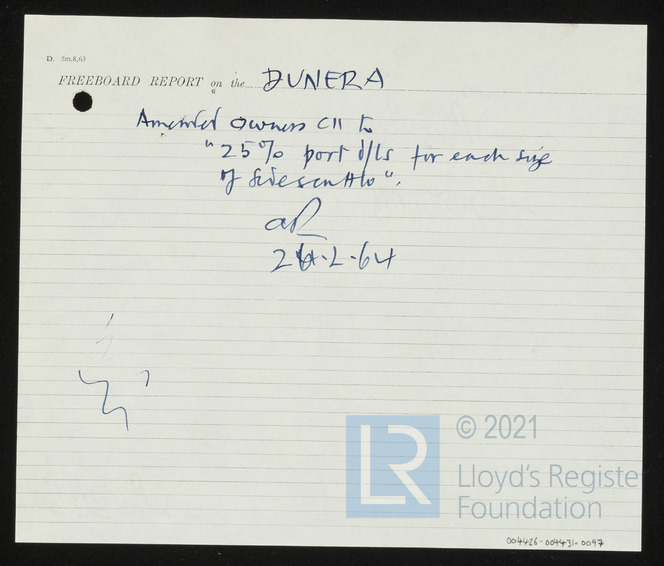 D. 5m,8,63
FREEBOARD REPORT on the DUNERA
Amended Owners C11 to
"25% port d/ls for each size
of sidescuttle".
24.2.64
© 2021
LR
Lloyd's Registe
Foundation
004426-004431-0097